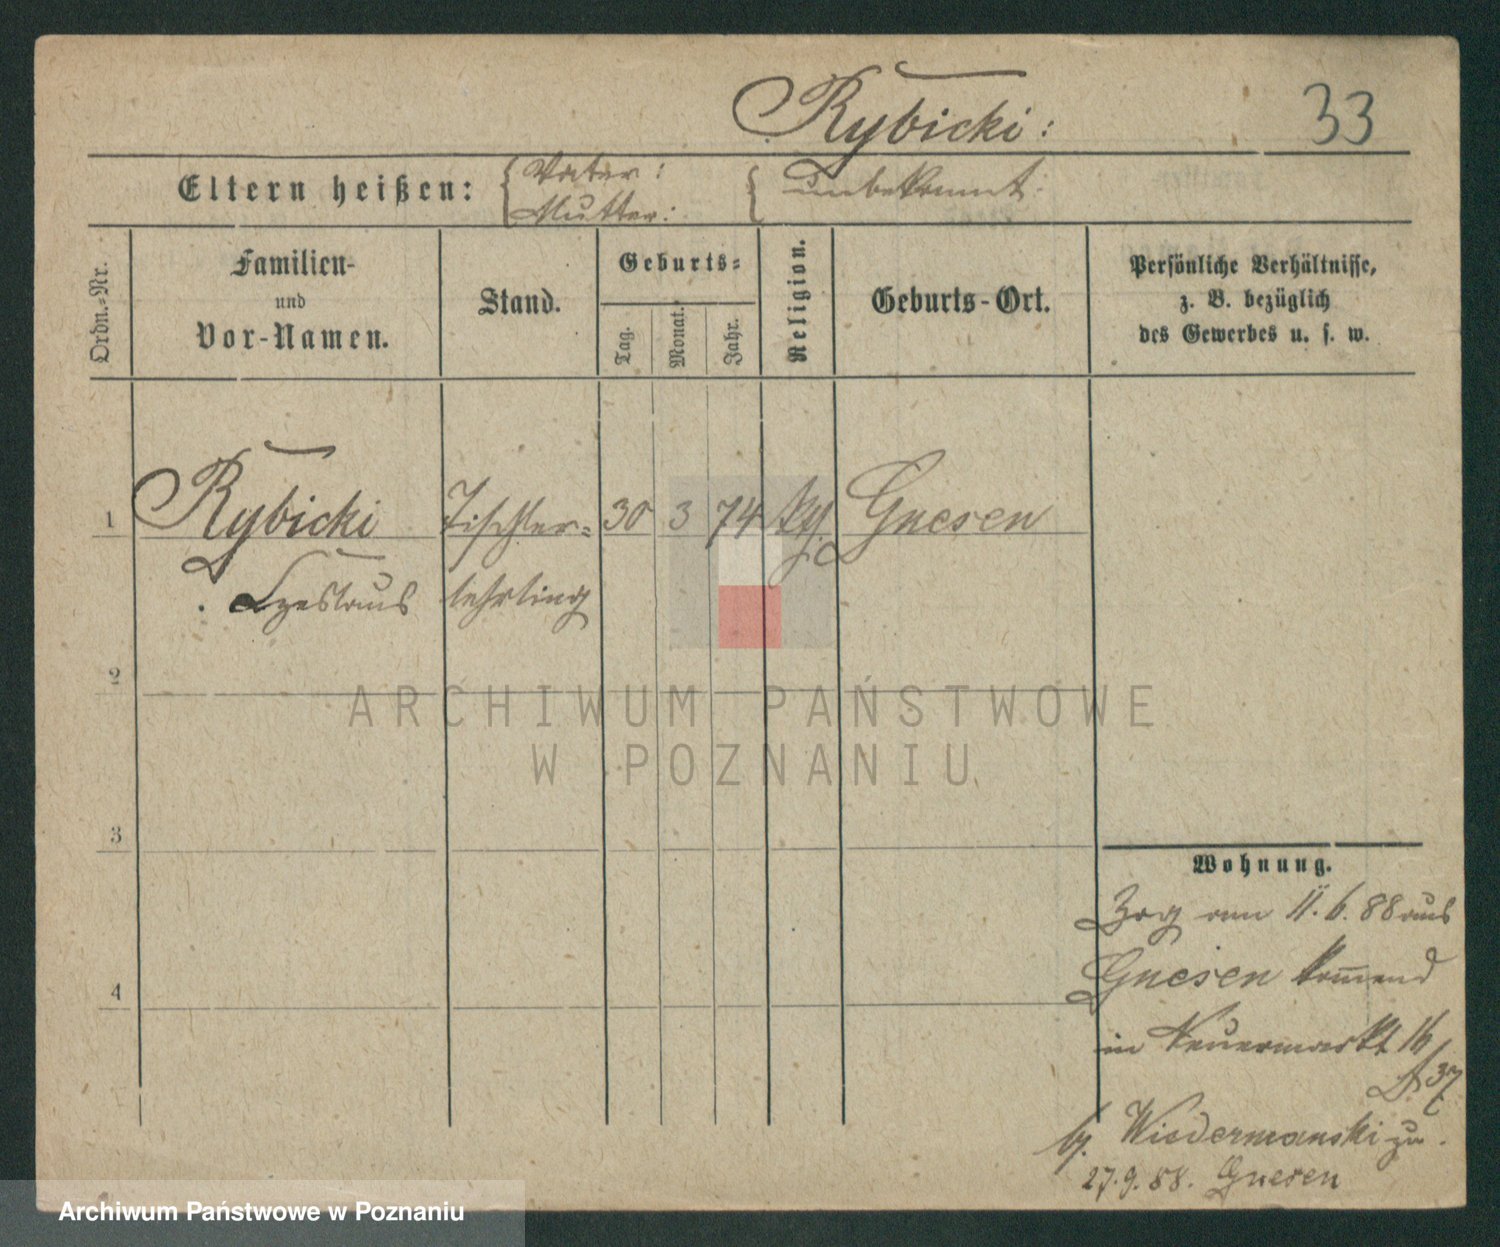 Rybicki:
33
Eltern heißen: { Vater: { unbekannt.
Mutter:
Ordn.-Nr.
Familien-
und
Vor-Namen.
Stand.
Geburts-
Tag.
Monat.
Jahr.
Religion.
Geburts-Ort.
Persönliche Verhältnisse,
z. B. bezüglich
des Gewerbes u. s. w.
1 Rybicki Tischler- 30 3 74 Gnesen
Czeslaus lehrling
2
3
4
Wohnung.
Zog am 11. 6. 88 aus
Gnesen kom̅end
in Neuermarkt 16
bei Wiedermanski zu.
27. 9. 88. Gnesen
ARCHIWUM PAŃSTWOWE
W POZNANIU
Archiwum Państwowe w Poznaniu